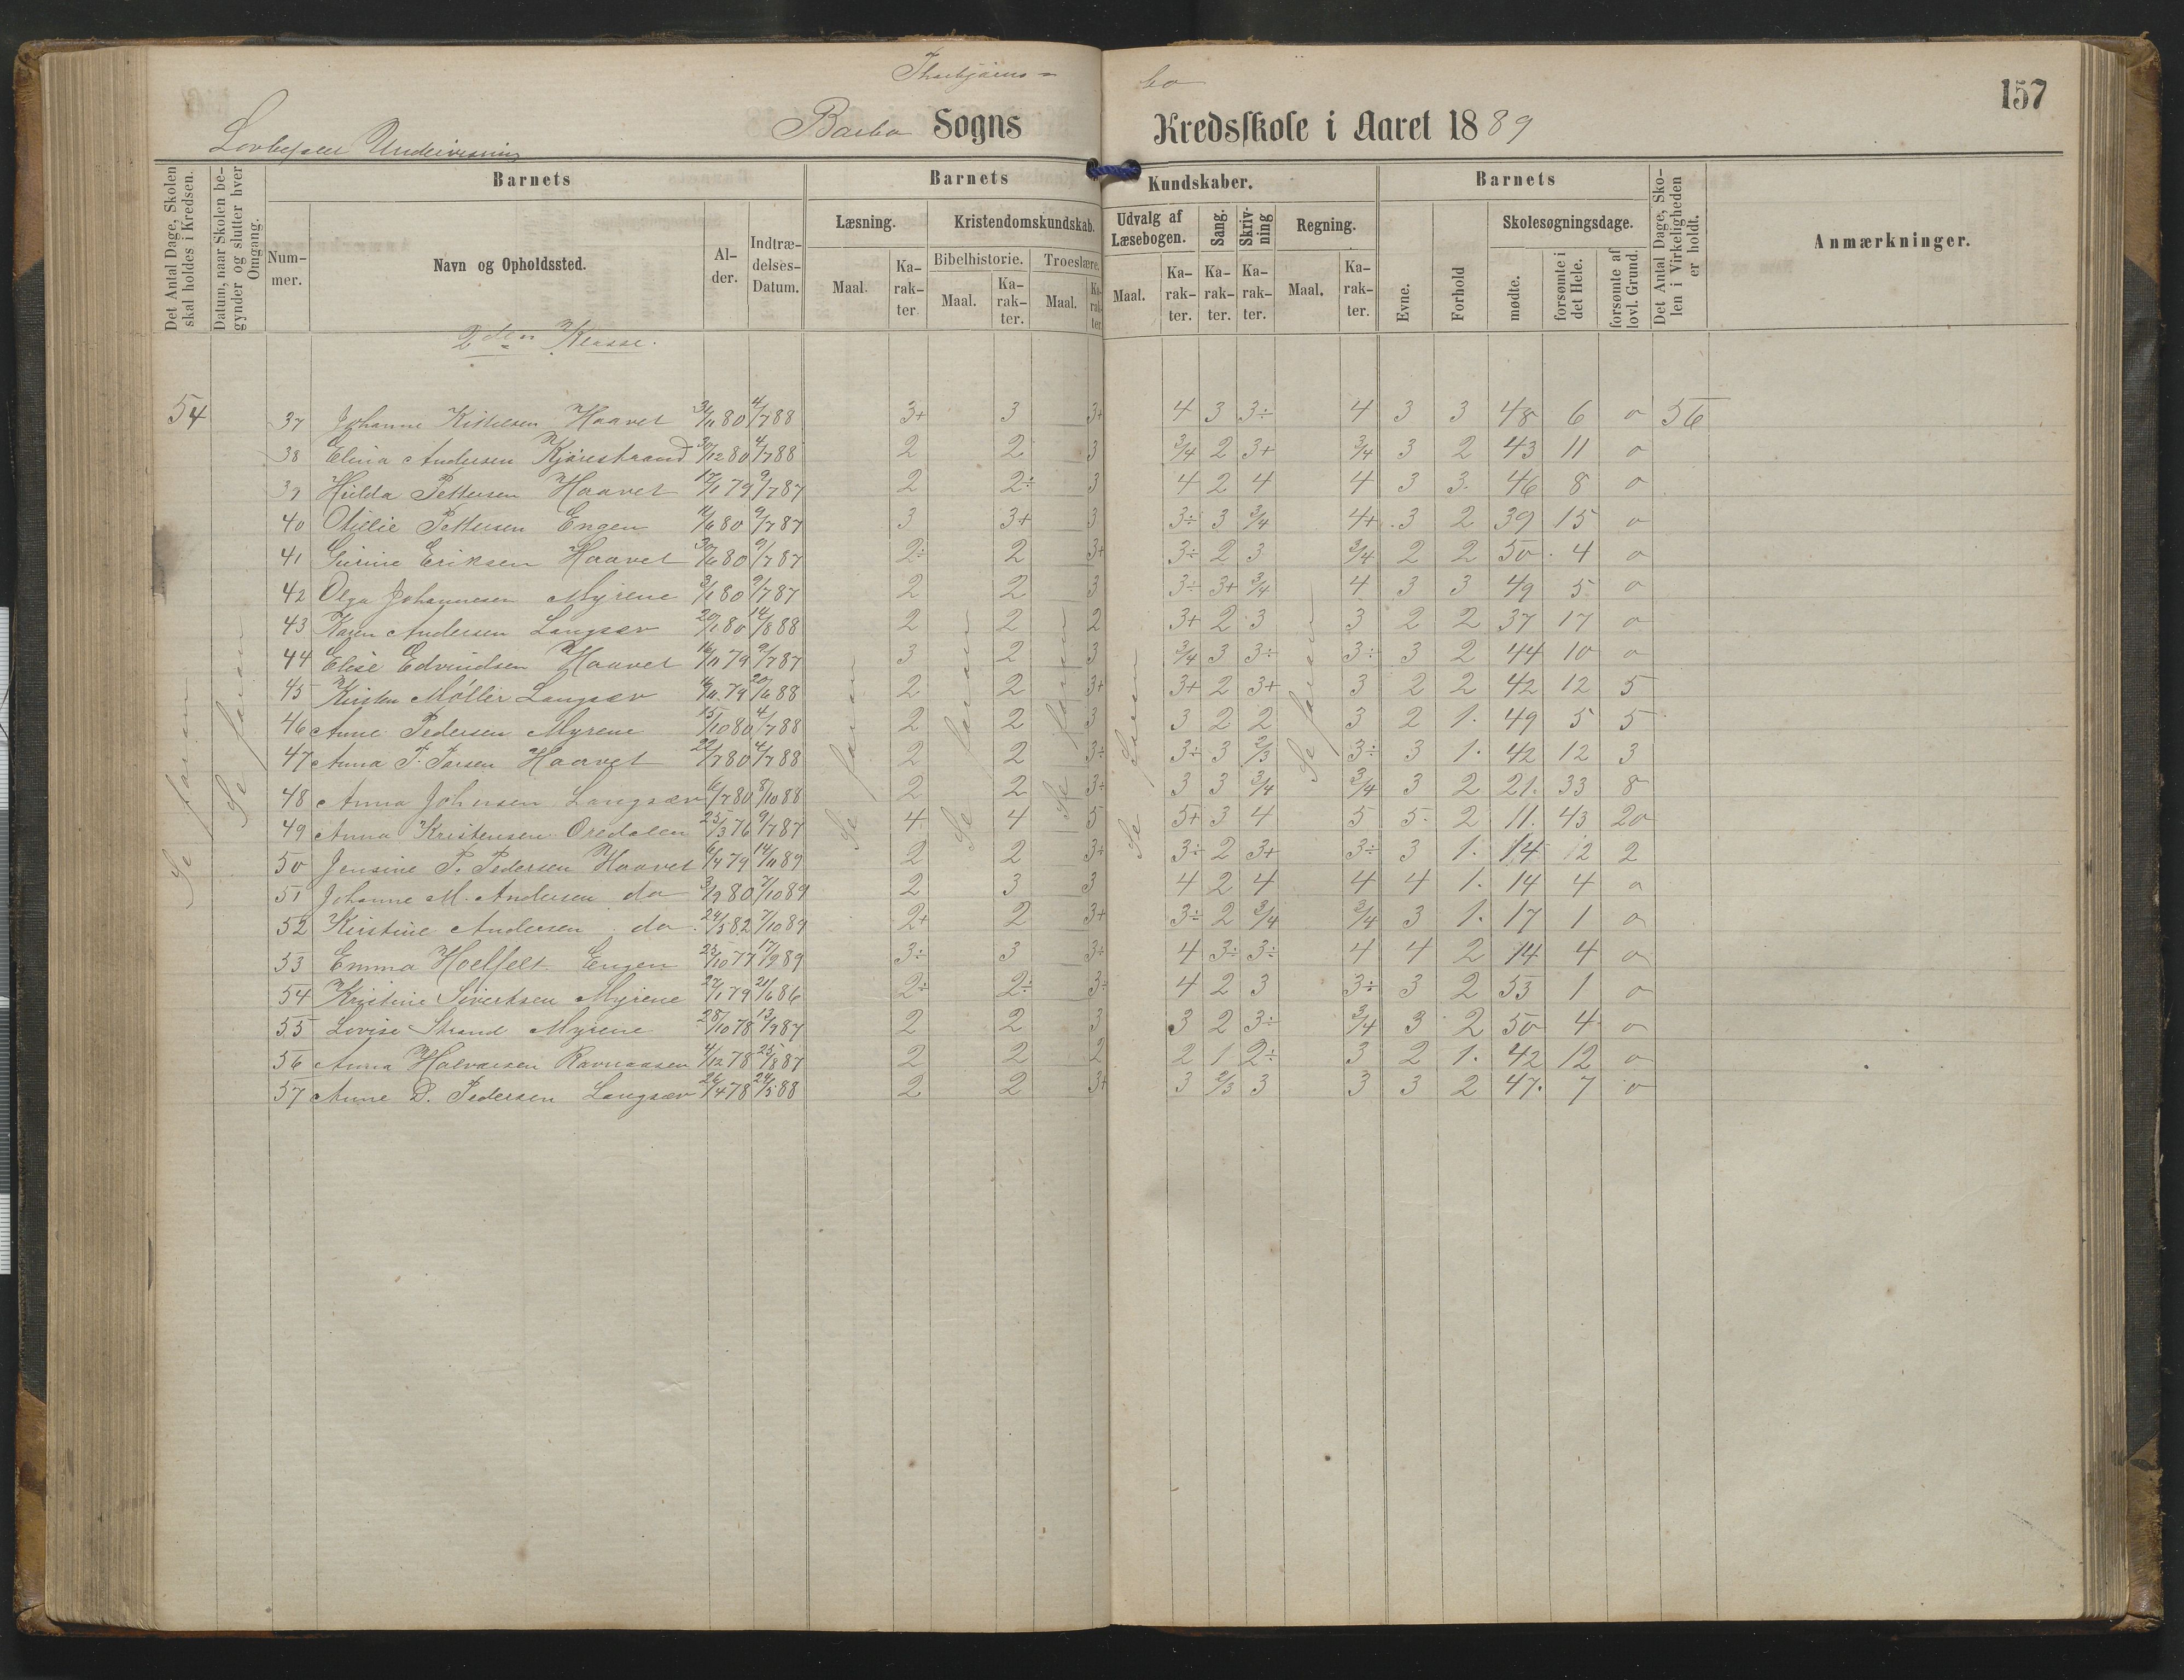 157
Barbo Sogns Kredsskole i Aaret 1889
Lovbefalet Undervisning
Det Antal Dage, Skolen skal holdes i Kredsen. | Datum, naar Skolen begynder og slutter hver Omgang. | Barnets | Barnets Kundskaber. | Barnets | Det Antal Dage, Skolen i Virkeligheden er holdt. | Anmærkninger.
Nummer. | Navn og Opholdssted. | Alder. | Indtrædelses-Datum. | Læsning. | Kristendomskundskab. | Udvalg af Læsebogen. | Sang. | Skrivning | Regning. | Evne. | Forhold | Skolesøgningsdage.
Bibelhistorie. | Troeslære. | mødte. | forsømte i det Hele. | forsømte af lovl. Grund.
Maal. | Karakter. | Maal. | Karakter. | Maal. | Karakter. | Maal. | Karakter. | Karakter. | Karakter. | Maal. | Karakter.
2den Klasse.
54 | 37 Johanne Kittelsen Haavet | 4/7 88 | 3+ | 3 | 3+ | 4 | 3 | 3÷ | 4 | 3 | 3 | 48 | 6 | 0 | 56
38 Elina Andersen Kjørestrand 30/12 80 | 4/7 88 | 2 | 2 | 3 | 3/4 | 2 | 3+ | 3/4 | 3 | 2 | 43 | 11 | 0
39 Hilda Pettersen Haavet 12/1 79 | 9/7 87 | 2 | 2÷ | 3 | 4 | 2 | 4 | 4 | 3 | 3 | 46 | 8 | 0
40 Otilie Pettersen Engen | 9/7 87 | 3 | 3+ | 3 | 3÷ | 3 | 3/4 | 4+ | 3 | 2 | 39 | 15 | 0
41 Eriksen Haavet 30/6 80 | 9/7 87 | 2÷ | 2 | 3+ | 3÷ | 2 | 3 | 3/4 | 2 | 2 | 50 | 4 | 0
42 Olga Johannesen Myrene 3/1 80 | 9/7 87 | 2 | 2 | 3 | 3÷ | 3+ | 3/4 | 4 | 3 | 3 | 49 | 5 | 0
43 Karen Andersen Langsæv 20/1 80 | 14/8 88 | 2 | 2 | 2 | 3+ | 2 | 3 | 3 | 2 | 2 | 37 | 17 | 0
44 Elise Edvindsen Haavet 16/11 79 | 9/7 87 | 3 | 2 | 3 | 3/4 | 3 | 3÷ | 3÷ | 3 | 2 | 44 | 10 | 0
45 Kirsten Møller Langsæv | 20/6 88 | 2 | 2 | 3+ | 3+ | 2 | 3+ | 3 | 2 | 2 | 42 | 12 | 5
46 Anne Pedersen Myrene 15/10 80 | 4/7 88 | 2 | 2 | 3 | 3 | 2 | 2 | 3 | 2 | 1. | 49 | 5 | 5
47 Anna Haavet 22/7 80 | 4/7 88 | 2 | 2 | 3÷ | 3÷ | 3 | 2/3 | 3÷ | 3 | 1. | 42 | 12 | 3
48 Anna Johnsen Langsæv 6/7 80 | 8/10 88 | 2 | 2 | 3÷ | 3 | 3 | 3/4 | 3/4 | 3 | 2 | 21. | 33 | 8
49 Anna Kristensen Oredalen 25/3 76 | 9/7 87 | 4 | 4 | 5 | 5+ | 3 | 4 | 5 | 5. | 2 | 11. | 43 | 20
50 Jensine P. Pedersen Haavet | 14/11 89 | 2 | 2 | 3÷ | 3÷ | 2 | 3+ | 3÷ | 3 | 1. | 14 | 12 | 2
51 Johanne M. Andersen do 3/9 80 | 7/10 89 | 2 | 3 | 3 | 4 | 2 | 4 | 4 | 4 | 1. | 14 | 4 | 0
52 Kirstine Andersen do. 24/5 82 | 7/10 89 | 2+ | 2 | 3+ | 3÷ | 2 | 3/4 | 3/4 | 3 | 1. | 17 | 1 | 0
53 Emma Hoelfelt Engen 25/10 77 | 17/9 89 | 3÷ | 3 | 3÷ | 4 | 3÷ | 3÷ | 4 | 4 | 2 | 14 | 4 | 0
54 Kristine Sivertsen Myrene 27/1 79 | 21/6 86 | 2÷ | 2÷ | 3÷ | 4 | 2 | 3 | 3÷ | 3 | 2 | 53 | 1 | 0
55 Lovise Strand Myrene 28/10 78 | 13/9 87 | 2 | 2 | 3 | 3 | 2 | 3÷ | 3/4 | 3 | 2 | 50 | 4 | 0
56 Anna Halvorsen Ravnaasen 4/12 78 | 25/8 87 | 2 | 2 | 2 | 2 | 1 | 2÷ | 3 | 2 | 1. | 42 | 12 | 0
57 Anne D. Pedersen Langsæv 26/4 78 | 24/5 88 | 2 | 2 | 3+ | 3 | 2/3 | 3 | 3 | 3 | 2 | 47. | 7 | 0
Se foran
Se foran
Se foran
Se foran
Se foran
Se foran
Se foran